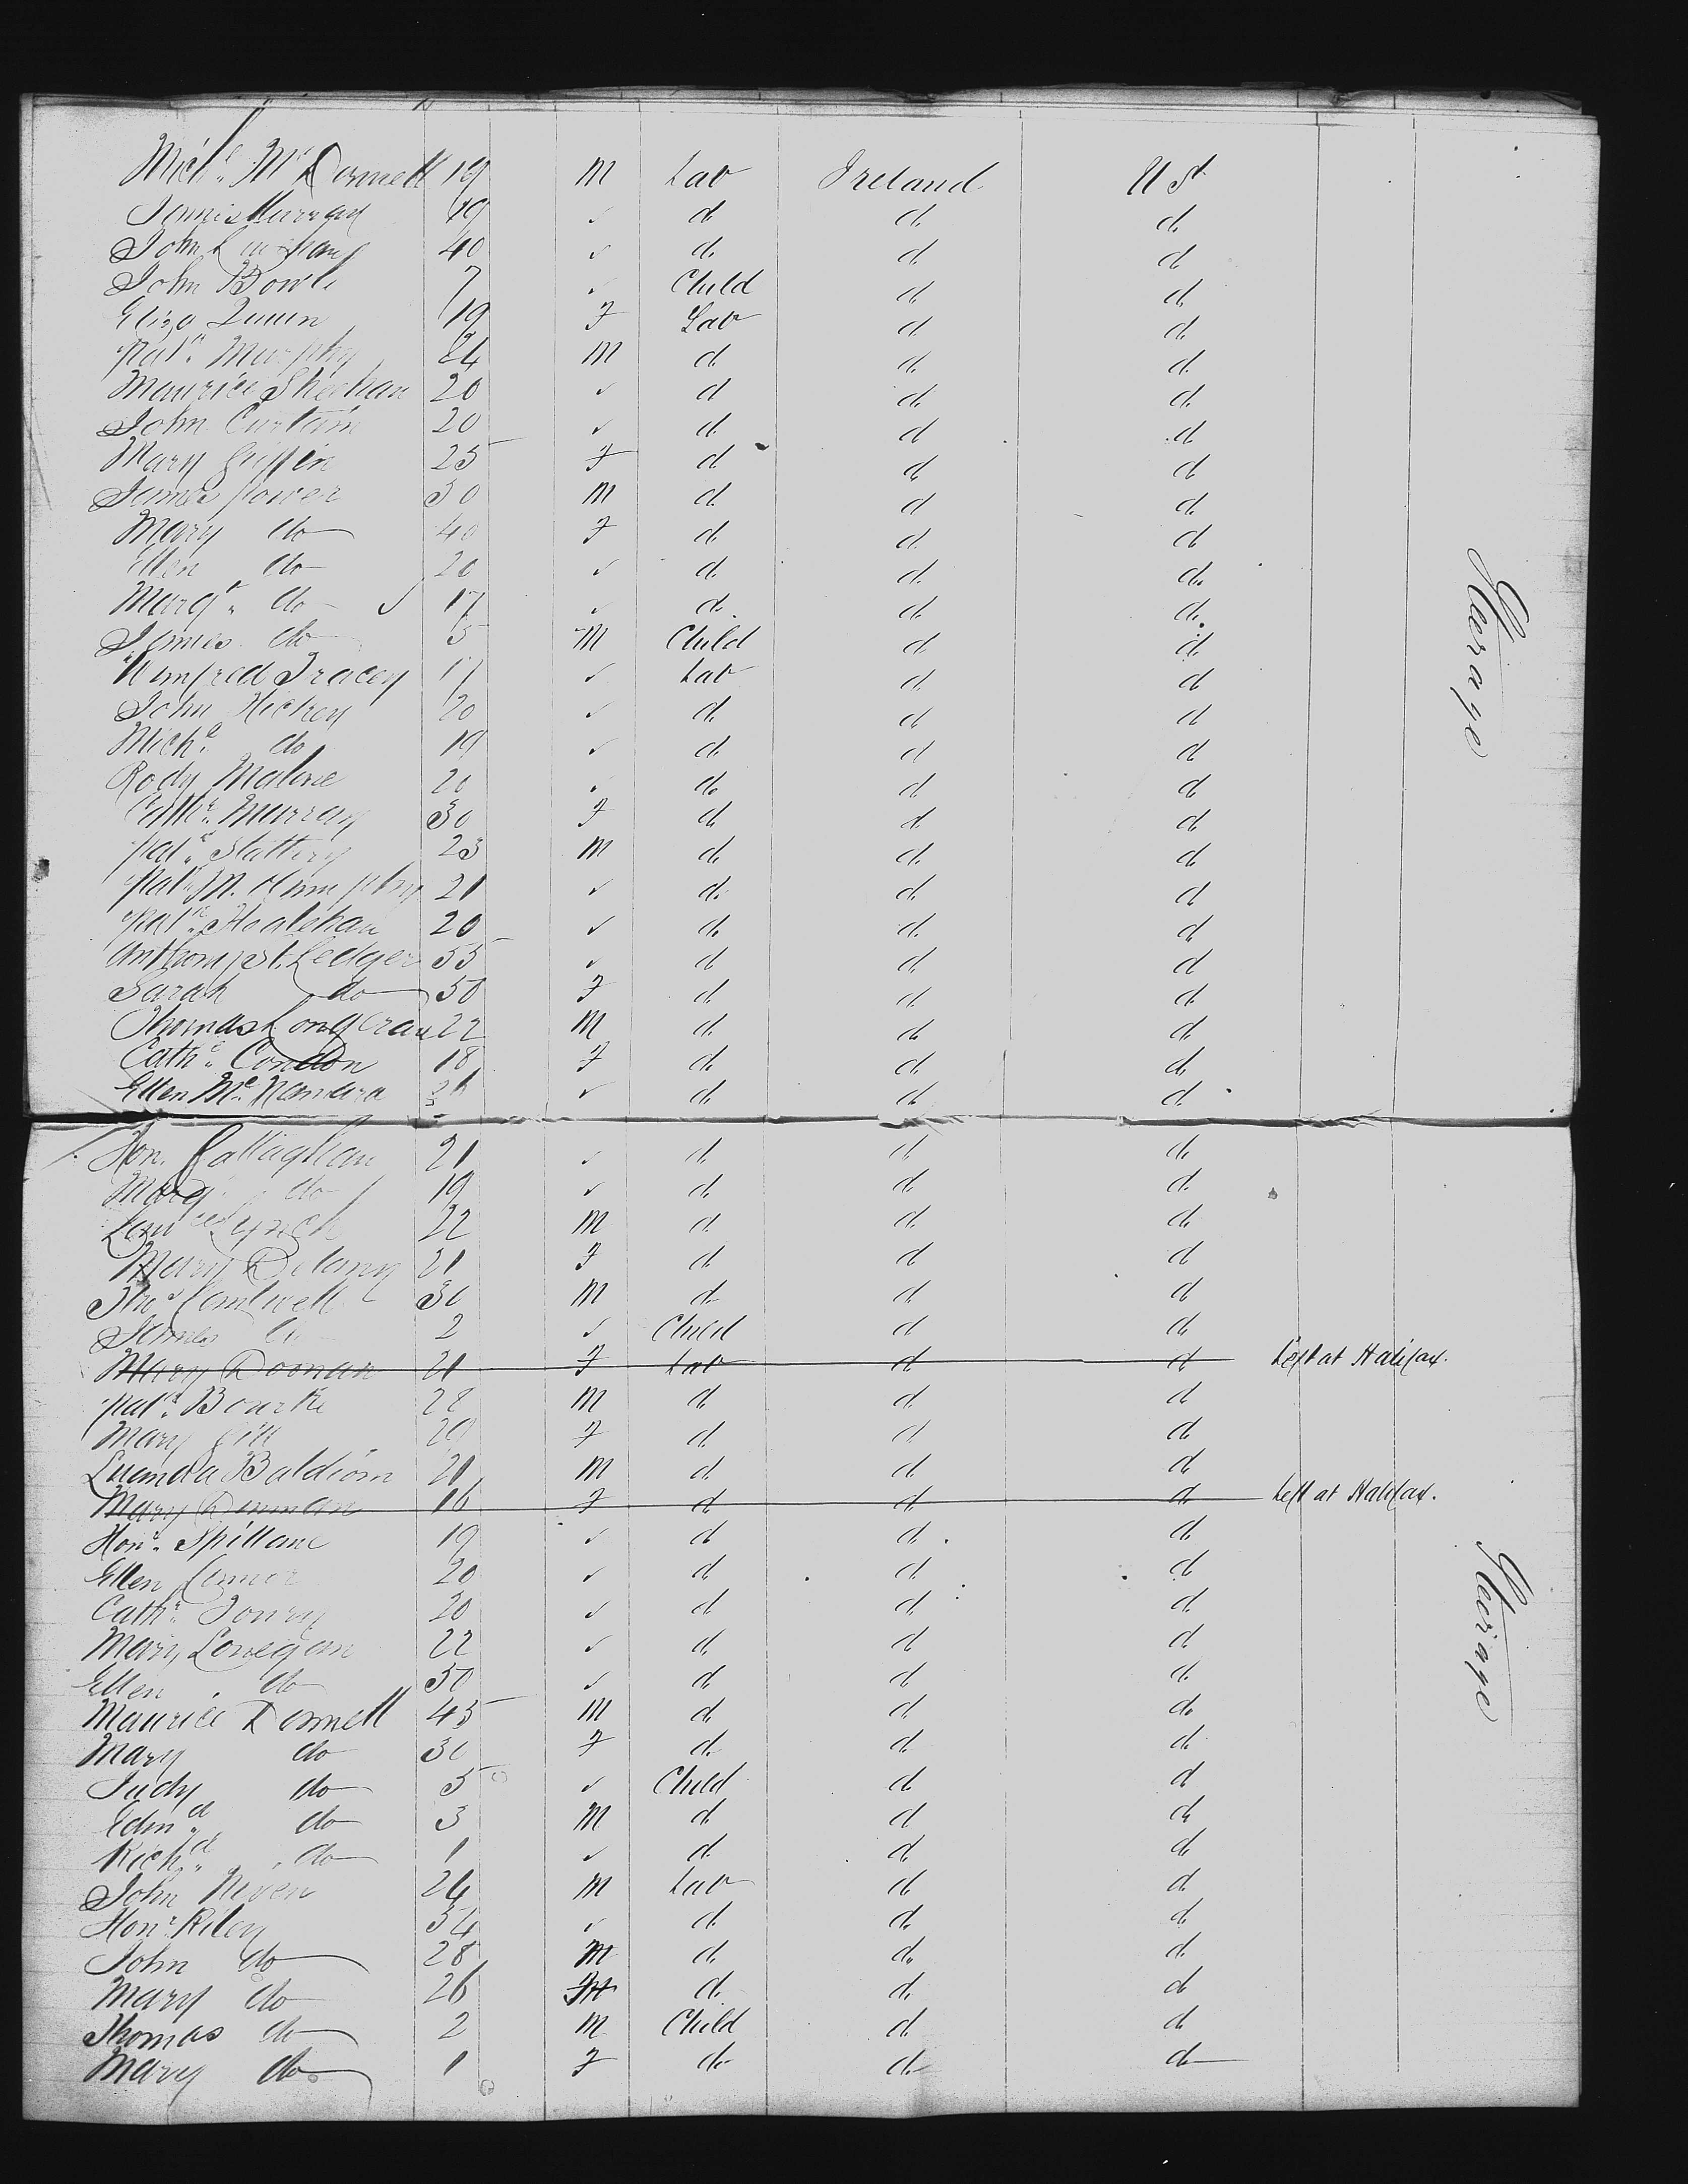 Mich.l Mc Donnell 19 M Lab Ireland U St
James Murray 19 ✓ d d d
John 40 ✓ d d d
John Bowle 7 ✓ Child d d
Eliza Quinn 19 F Lab d d
Pat.k Murphy 24 M d d d
Maurice Sheehan 20 ✓ d d d
John Curtain 20 ✓ d d d
Mary Griffin 25 F d d d
James Power 50 M d d d
Mary do 40 F d d d
Ellen do 20 ✓ d d d
Marg.t do ✓ 17 ✓ d d d
James do 5 M Child d d
Winifred Tracey 17 ✓ Lab d d
John Hickey 20 ✓ d d d
Mich.l do 19 ✓ d d d
Rody Malone 20 ✓ d d d
Cath.e Murray 30 F d d d
Pat.k Slattery 23 M d d d
Pat.k 21 ✓ d d d
Pat.k 20 ✓ d d d
Anthony St. Ledger 55 ✓ d d d
Sarah do 50 F d d d
Thomas 22 M d d d
Cath.e Condon 18 F d d d
Ellen Mc Namara ✓ d d d
Hon. Callaghan 21 ✓ d d d
Marg.t do 19 ✓ d d d
Law.ce Lynch 22 M d d d
Mary Delany 21 F d d d
Tho.s Cantwell 30 M d d d
James do 2 ✓ Child d d
Mary Doonan 21 F Lab d d Left at Halifax.
Pat.k Bourke 28 M d d d
Mary Gill 20 F d d d
21 M d d d
Mary 16 F d d d Left at Halifax.
Hon.r Spillane 19 ✓ d d d
Ellen Connor 20 ✓ d d d
Cath.e 20 ✓ d d d
Mary Lonegan 22 ✓ d d d
Ellen do 50 ✓ d d d
Maurice Donnell 45 M d d d
Mary do 30 F d d d
Judy do 5 ✓ Child d d
Edm.d do 3 M d d d
Rich.d do 1 ✓ d d d
John Niven 24 M Lab d d
Hon.r Riley 54 ✓ d d d
John do 28 M d d d
Mary do 26 F d d d
Thomas do 2 M Child d d
Mary do 1 F do d do
Steerage
Steerage